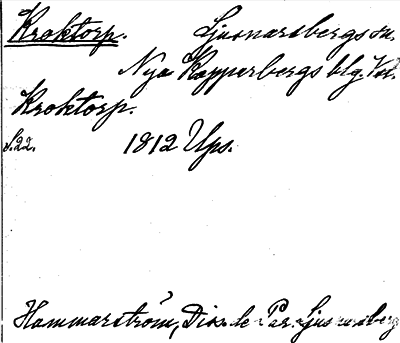 Kroktorp. Ljusnarsbergs sn.
Nya Kopparbergs blg. Vm.
Kroktorp.
S.22. 1812 Ups.
Hammarström, Diss. de Par. Ljusnarsberg